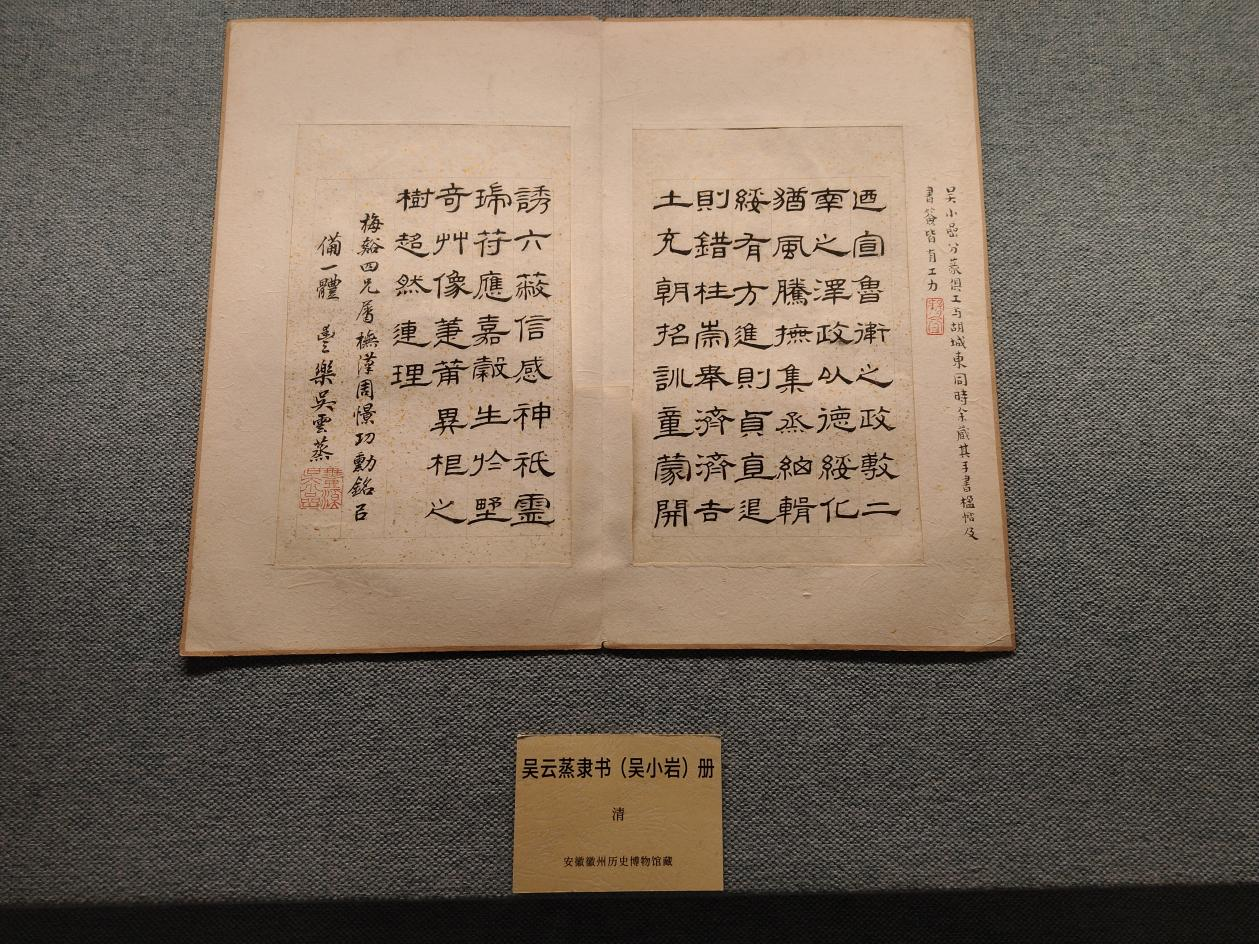 吴小喦分篆俱工与胡城東同時余藏其手書楹帖及
書簽皆有工力
迺宣魯衛之政敷二
南之澤政以德綏化
猶風騰撫集烝細輯
綏有方進則貞直退
則錯枉崇舉濟濟吉
士充朝招訓童蒙開
誘六蔽信感神祇靈
瑞符應嘉穀生於野
奇艸像萐莆異根之
樹超然連理
梅谿四兄屬橅漢周憬功勳銘㠯
備一體 豐樂吳雲蒸
吴云蒸隶书（吴小岩）册
清
安徽徽州历史博物馆藏